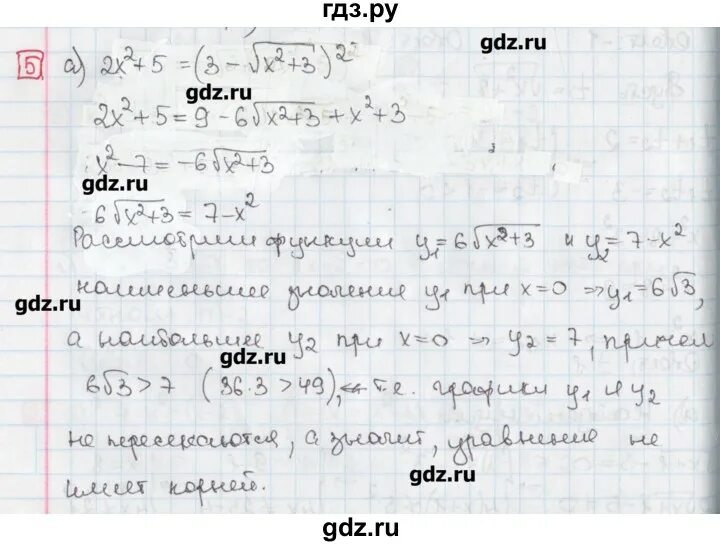 гдз.ру
5 а) 2x²+5 = (3 - √x²+3)²
gdz.ru
2x²+5 = 9 - 6√x²+3 + x²+3
x²-7 = -6√x²+3
gdz.ru
6√x²+3 = 7-x²
Рассмотрим функции y₁ = 6√x²+3 и y₂ = 7-x²
наименьшее значение y₁ при x=0 ⇒ y₁=6√3,
gdz.ru
gdz.ru
а наибольшее y₂ при x=0 ⇒ y₂=7, причем
gdz.ru
6√3 > 7 (36·3 > 49), т.е. графики y₁ и y₂
не пересекаются, а значит, уравнение не
gdz.ru
имеет корней.
gdz.ru